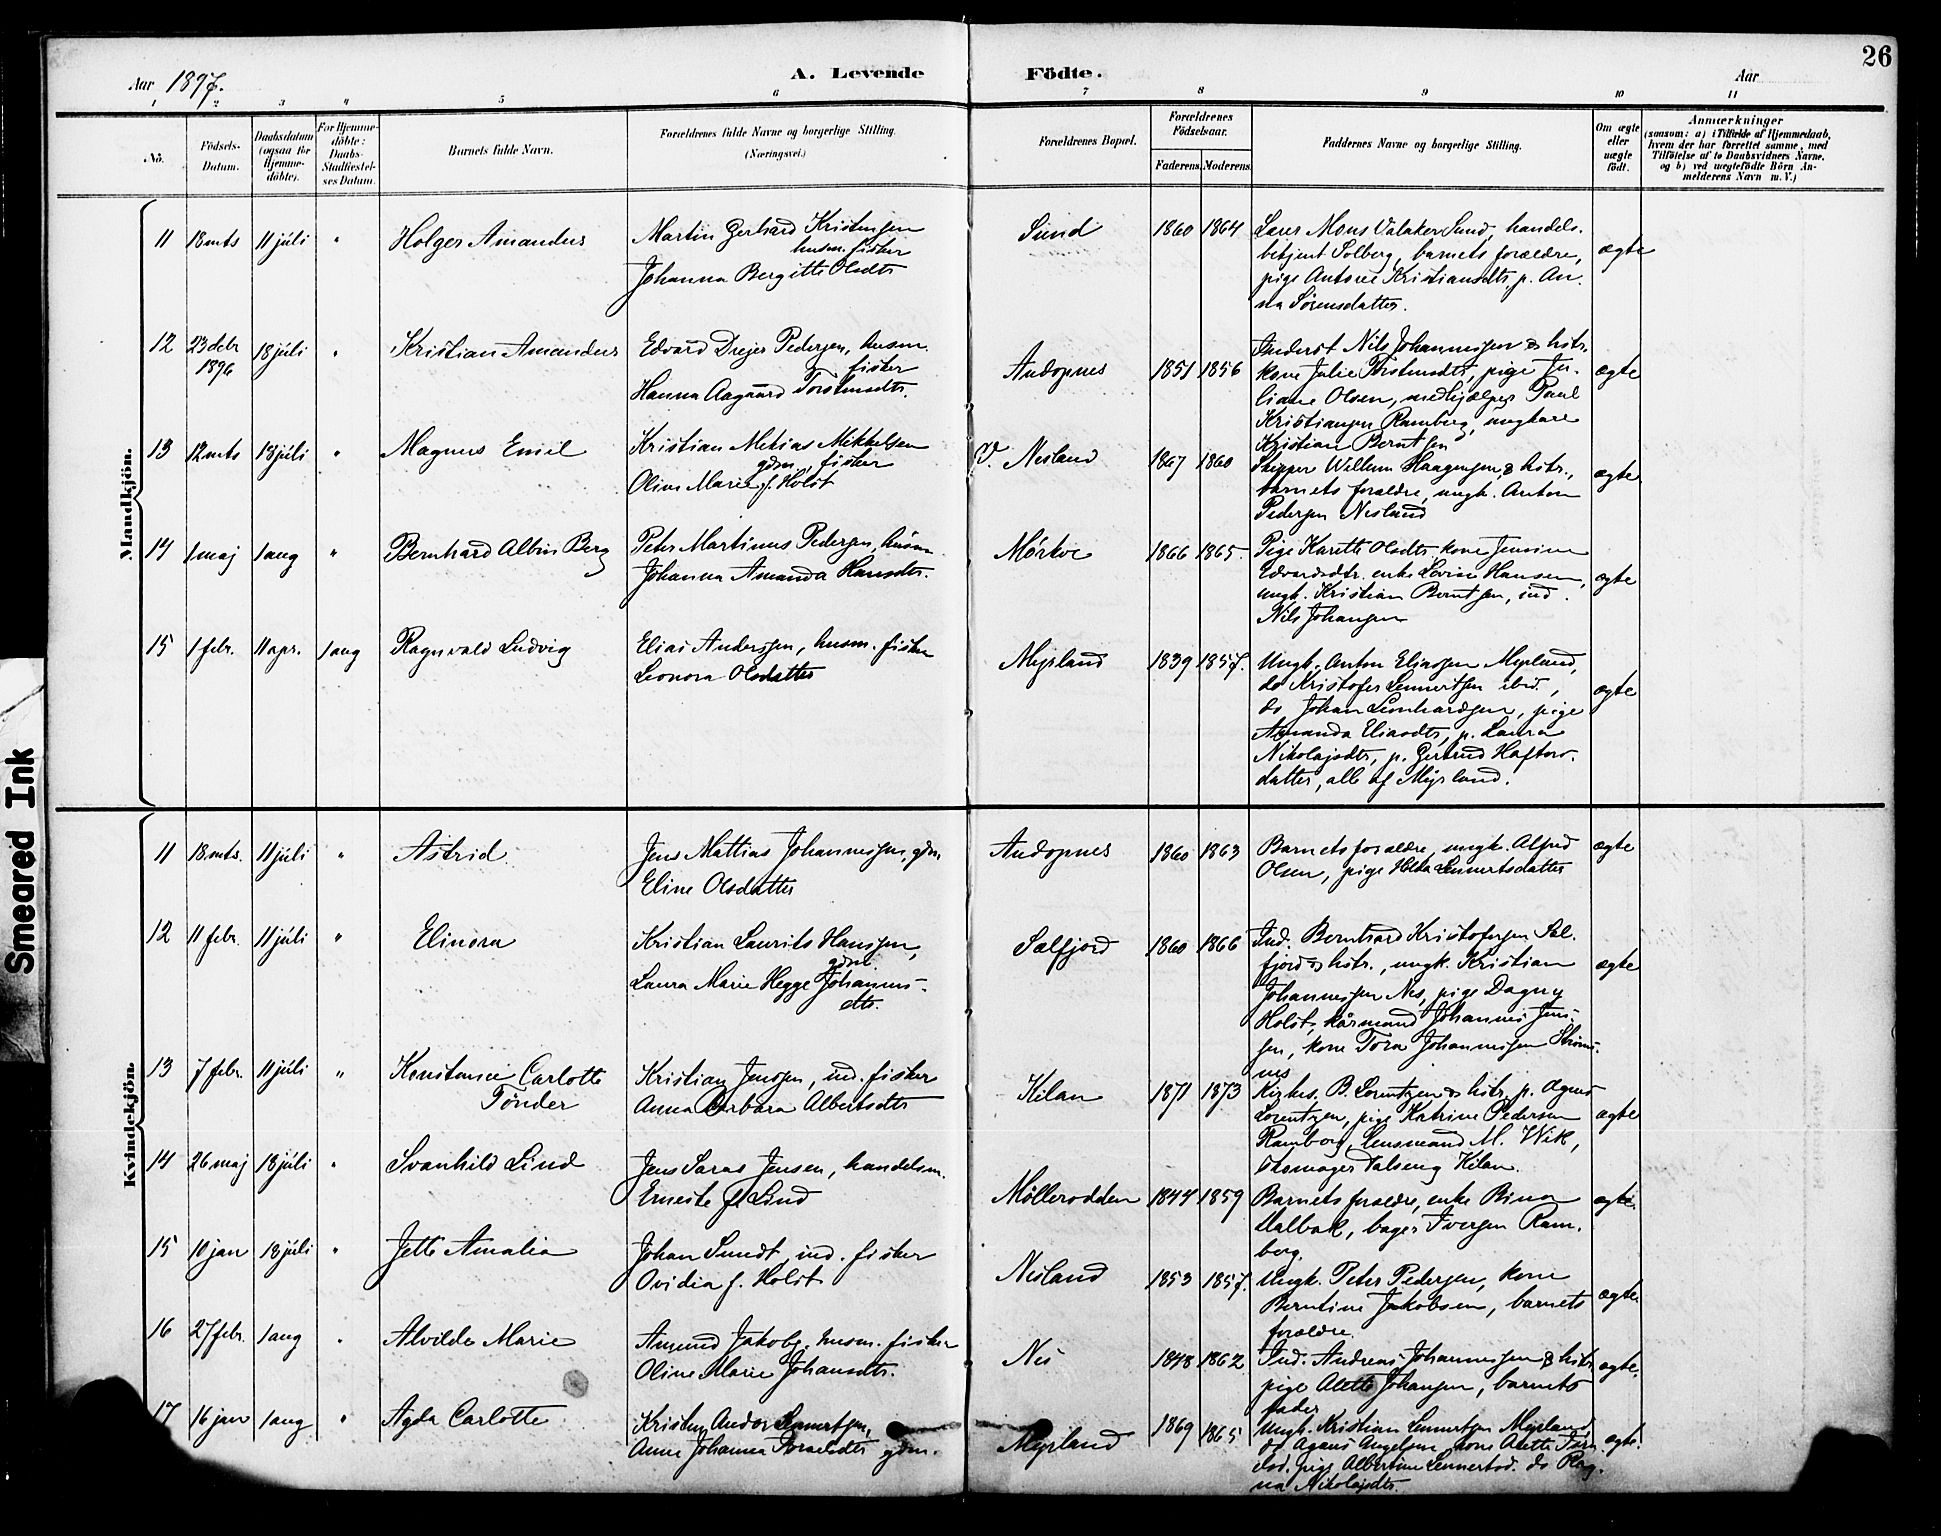 26
Aar 1897.
A. Levende Födte.
Aar
1 2 3 4 5 6 7 8 9 10 11
No.
Födsels-Datum.
Daabsdatum (ogsaa for Hjemme-döbte).
For Hjemme-döbte: Daabs-Stadfæstel-ses Datum.
Barnets fulde Navn.
Forældrenes fulde Navne og borgerlige Stilling.
(Næringsvei.)
Forældrenes Bopæl.
Forældrenes Födselsaar.
Faderens. Moderens.
Faddernes Navne og borgerlige Stilling.
Om ægte eller uægte födt.
Anmærkninger
(saasom: a) i Tilfælde af Hjemmedaab,
hvem der har forrettet samme, med
Tilföielse af to Daabsvidners Navne,
og b) ved uægtefödte Börn An-
melderens Navn m. V.)
Mandkjön.
11 18 mts 11 júli " Holger Amandus
Martin Gerhard Kristensen
husm. fisker
Johanna Bergitte Olsdtr
Sund 1860 1864
Lærer Mons Valaker Sund, handels-
betjent Solberg, barnets forældre,
pige Antone Kristiansdtr, p. An-
na Sörensdatter.
ægte
12 23 debr 1896 18 júli " Kristian Amandus
Edvard Drejer Pedersen, husm.
fisker
Hanna Aagaard Torstensdtr.
Andopnes 1851 1856
Inderst Nils Johannessen & hstr.
kone Julie Torstensdtr, pige Ju-
liane Olsen, medhjælper Paul
Kristiansen Ramberg, ungkare
Kristian Berntsen
ægte
13 12 mts 18 júli " Magnus Emil
Kristian Metias Mikkelsen
gdm, fisker
Oline Marie f. Holst
V. Nesland 1867 1860
Skipper Willum Haagensen & hstr.,
barnets forældre, ungk. Anton
Pedersen Nesland
ægte
14 1 maj 1 aug " Bernhard Albin Berg
Peter Martinus Pedersen, husm
Johanna Amanda Hansdtr.
Mörkve 1866 1865.
Pige Karette Olsdtr. kone Jensine
Edvardsdtr. enke Lovise Hansen,
ungk. Kristian Berntsen, ind.
Nils Johansen
ægte
15 1 febr. 11 apr. 1 aug Ragnvald Ludvig
Elias Anderssen, husm. fisker
Leonora Olsdatter
Myrland 1839 1857.
Ungk. Anton Eliassen Myrland,
do Kristofer Lennertsen ibid.,
do Johan Leonhardsen, pige
Amanda Eliasdtr, p. Laura
Nikolajsdtr, p. Gertrud Haftors-
datter, alle af Myrland.
ægte
Kvindekjön.
11 18 mts. 11 júli " Astrid
Jens Mattias Johannessen, gdm.
Eline Olsdatter
Andopnes 1860 1863
Barnets forældre, ungk. Alfred
Olsen, pige Hilda Lennertsdatter
ægte
12 11 febr. 11 júli " Elinora
Kristian Laurits Hanssen,
gdm.
Laura Marie Hegge Johannes-
dtr.
Selfjord 1860 1866
Ind. Bernhard Kristofersen Sel-
fjord & hstr., ungk. Kristian
Johannessen Nes, pige Dagny
Holst, kårmand Johannes Jens-
sen, kone Tora Johannessen Ströms-
nes
ægte
13 7 febr. 11 júli " Konstanse Carlotte
Tönder
Kristian Jenssen, ind. fisker
Anna Barbara Albertsdtr
Kilan 1871 1873
Kirkes. B. Lorentzen & hstr, p. Agnes
Lorentzen, pige Katrine Pedersen
Ramberg, Lensmand M. Wik,
skomager Valseng Kilan.
ægte
14 26 maj 18 júli " Svanhild Lind
Jens Saras Jensen, handelsm.
Erneste f. Lind
Möllerodden 1844 1859
Barnets forældre, enke Bina
Dalbak, bager Iversen Ram-
berg.
ægte
15 10 jan 18 júli " Jette Amalia
Johan Sundt, ind. fisker
Ovidia f. Holst
Nesland 1853 1857.
Ungk. Peter Pedersen, kone
Berntine Jakobsen, barnets
forældre.
ægte
16 27 febr. 1 aug " Alvilde Marie
Amund Jakobs. husm. fisker
Oline Marie Johansdtr.
Nes 1848 1862
Ind. Andreas Johannessen & hstr
pige Alette Johansen, barnets
fader
ægte.
17 16 jan 1 aug " Agda Carlotte
Kristen Andor Lennertsen,
Anne Johanna Toraelsdtr gdm.
Myrland 1869 1865
Ungk. Kristian Lennertsen Myrland,
do Agnus Angelsen, kone Alette
dsd. pige Albertine Lennertsd. do Rag-
na Nikolajsdtr.
ægte.
Smeared Ink